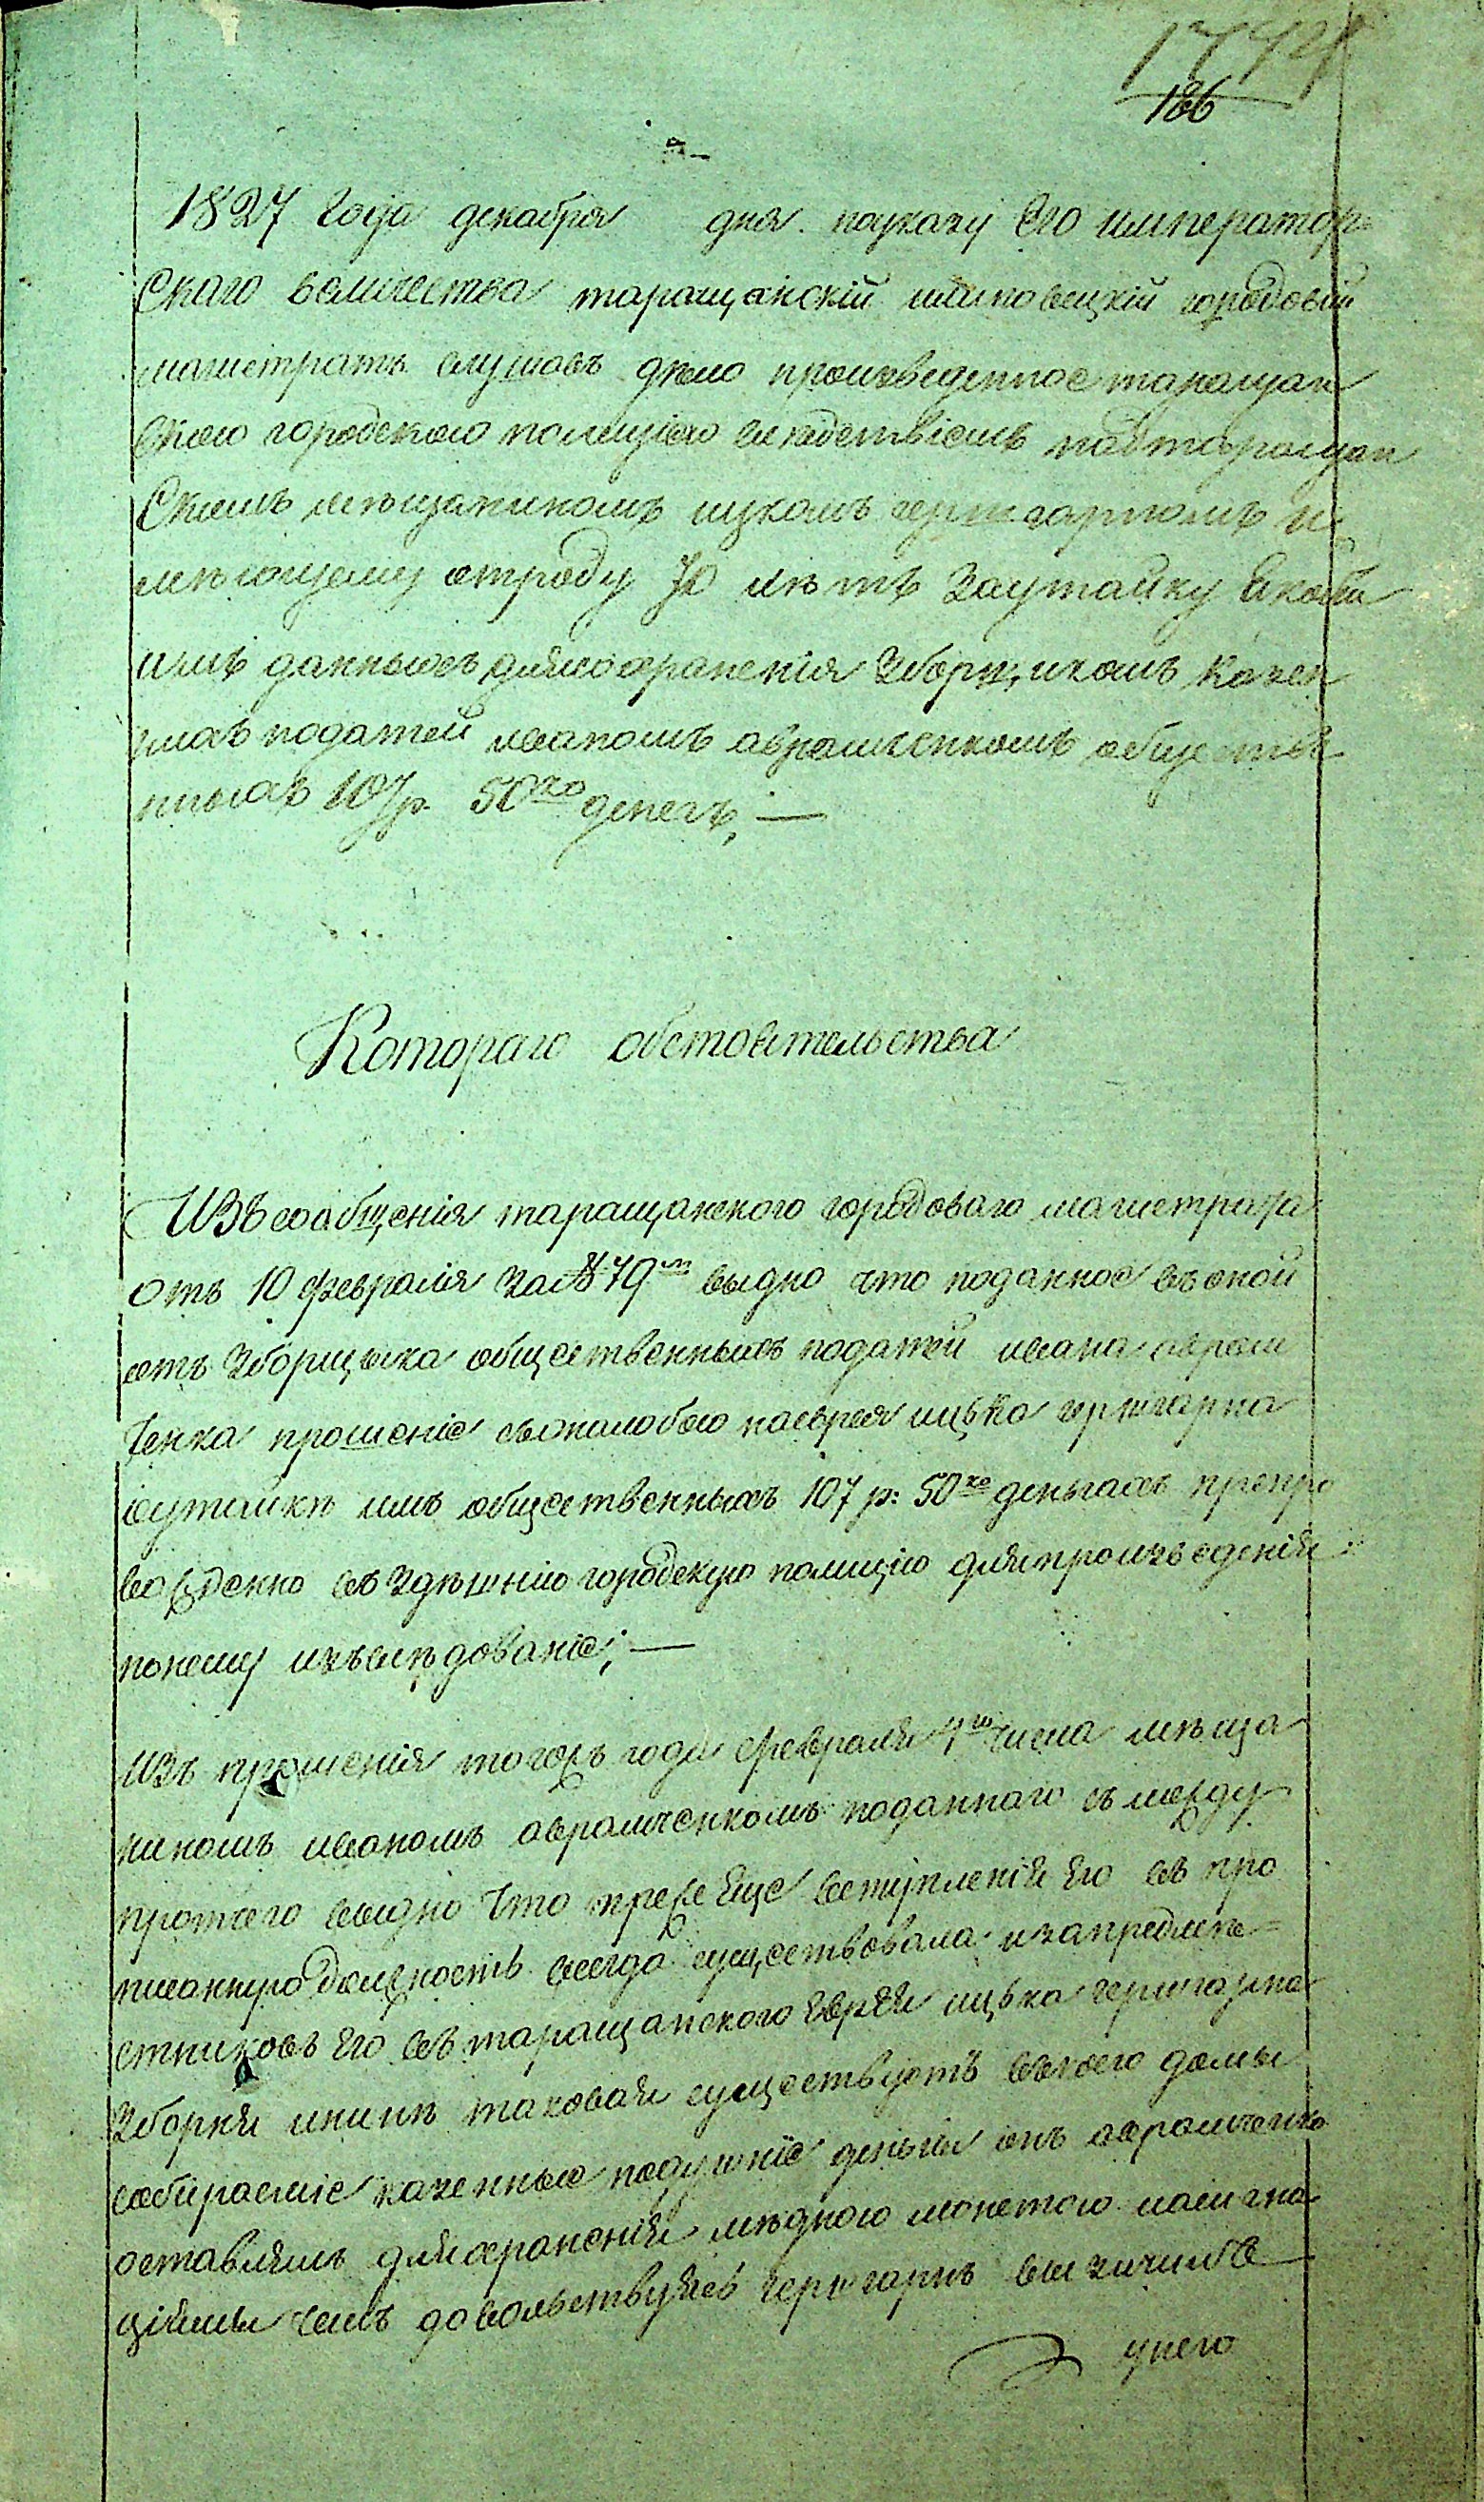 177
186
1827 года декабря дня. поуказу Его император=
Скаго величества таращанскій городовій
магистратъ слушавъ дело произведенное таращан
Скою городскою полицією следствіемъ надтаращан
Скимъ мещаниномъ ицкомъ гершгарномъ и
меющему отроду 70 летъ Заутайку
имъ данныхъ длясохраненія Зборщикомъ казен
ныхъ податей иваномъ аврамченкомъ обществе
нныхъ 107 р. 50 ко денегъ, —
Котораго обстоятельства
ИЗЪ сообщенія таращанского городоваго магистрата
отъ 10 февраля За № 79 м видно что поданное въоной
отъ Зборщика общественныхъ податей ивана аврам
Ченка прошеніе сжалобою наеврея ицька гершгарна
оутайке имъ общественныхъ 107 р: 50 ко деньгахъ препро
вожденно въ здешнію городскую полицію дляпроизведенія
понему изъследованіе; —
ИЗЪ прошенія тогожъ года февраля числа меща
ниномъ иваномъ аврамченкомъ поданнаго съ между
протчего видно Что преже Еще вступленія Его въ про
писанную должность всегда существовала изапредме=
стниковъ Его въ таращанского Еврея ицька гершгарна
Зборня ининъ таковая существуетъ вкоего домы
собираеміе казенные подушніе деньги онъ аврамченко
оставлялъ дляхраненія медною монетою иасигна
ціямы чемъ довольствуясь гершгарнъ
унего